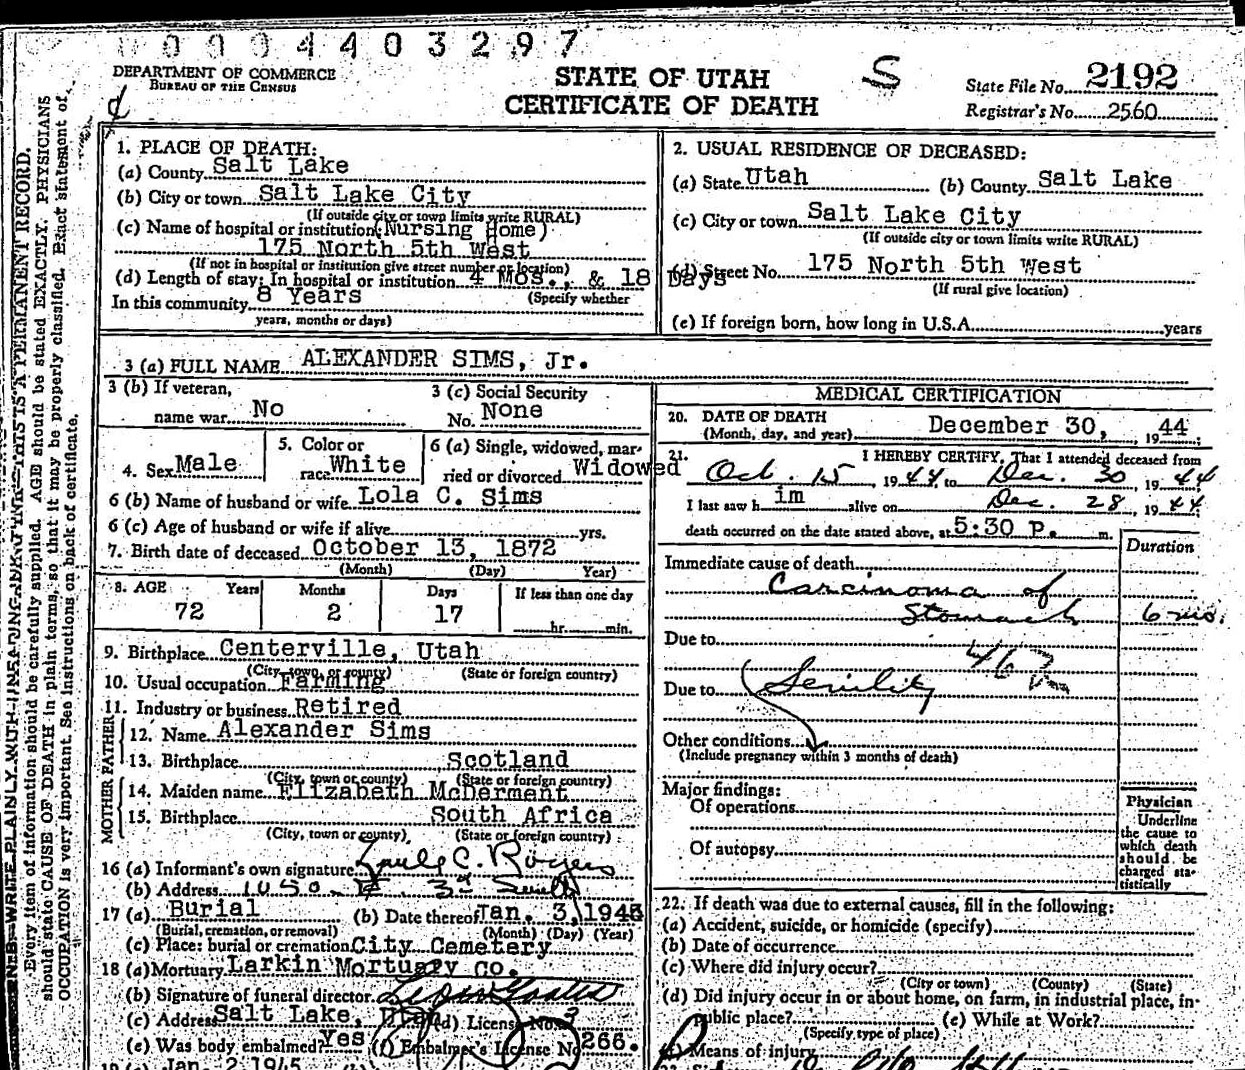 0 0 0 4 4 0 3 2 9 7
DEPARTMENT OF COMMERCE
BUREAU OF THE CENSUS
STATE OF UTAH
CERTIFICATE OF DEATH
S
State File No. 2192
Registrar's No. 2560
N. B.—WRITE PLAINLY WITH UNFADING INK—THIS IS A PERMANENT RECORD.
Every item of information should be carefully supplied. AGE should be stated EXACTLY. PHYSICIANS
should state CAUSE OF DEATH in plain terms, so that it may be properly classified. Exact statement of
OCCUPATION is very important. See instructions on back of certificate.
1. PLACE OF DEATH:
(a) County Salt Lake
(b) City or town Salt Lake City
(If outside city or town limits write RURAL)
(c) Name of hospital or institution (Nursing Home)
175 North 5th West
(If not in hospital or institution give street number or location)
(d) Length of stay: In hospital or institution 4 Mos., & 18 Days
(Specify whether
In this community 8 Years
years, months or days)
2. USUAL RESIDENCE OF DECEASED:
(a) State Utah (b) County Salt Lake
(c) City or town Salt Lake City
(If outside city or town limits write RURAL)
(d) Street No. 175 North 5th West
(If rural give location)
(e) If foreign born, how long in U.S.A. years
3 (a) FULL NAME ALEXANDER SIMS, Jr.
3 (b) If veteran,
name war No
3 (c) Social Security
No. None
4. Sex Male
5. Color or
race White
6 (a) Single, widowed, mar-
ried or divorced Widowed
6 (b) Name of husband or wife Lola C. Sims
6 (c) Age of husband or wife if alive yrs.
7. Birth date of deceased October 13, 1872
(Month) (Day) Year)
8. AGE Years Months Days If less than one day
72 2 17 hr. min.
9. Birthplace Centerville, Utah
(City, town, or county) (State or foreign country)
10. Usual occupation Farming
11. Industry or business Retired
FATHER
12. Name Alexander Sims
13. Birthplace Scotland
(City, town or county) (State or foreign country)
MOTHER
14. Maiden name Elizabeth McDerment
15. Birthplace South Africa
(City, town or county) (State or foreign country)
16 (a) Informant's own signature C. Rogers
(b) Address 1050 3rd
17 (a) Burial (b) Date thereof Jan. 3, 1945
(Burial, cremation, or removal) (Month) (Day) (Year)
(c) Place: burial or cremation City Cemetery
18 (a) Mortuary Larkin Mortuary Co.
(b) Signature of funeral director
(c) Address Salt Lake, Utah (d) License No. 3
(e) Was body embalmed? Yes (f) Embalmer's License No 266.
Jan. 2 1945
MEDICAL CERTIFICATION
20. DATE OF DEATH
(Month, day, and year) December 30, 1944;
21. I HEREBY CERTIFY, That I attended deceased from
Oct. 15, 1944 to Dec. 30, 1944
I last saw him alive on Dec. 28, 1944
death occurred on the date stated above, at 5:30 P. m.
Duration
Immediate cause of death
Carcinoma of
Stomach 6 mo.
Due to
Due to Senility
Other conditions
(Include pregnancy within 3 months of death)
Major findings:
Of operations
Of autopsy
Physician
Underline
the cause to
which death
should be
charged sta-
tistically
22. If death was due to external causes, fill in the following:
(a) Accident, suicide, or homicide (specify)
(b) Date of occurrence
(c) Where did injury occur?
(City or town) (County) (State)
(d) Did injury occur in or about home, on farm, in industrial place, in
public place? (e) While at Work?
(Specify type of place)
(f) Means of injury